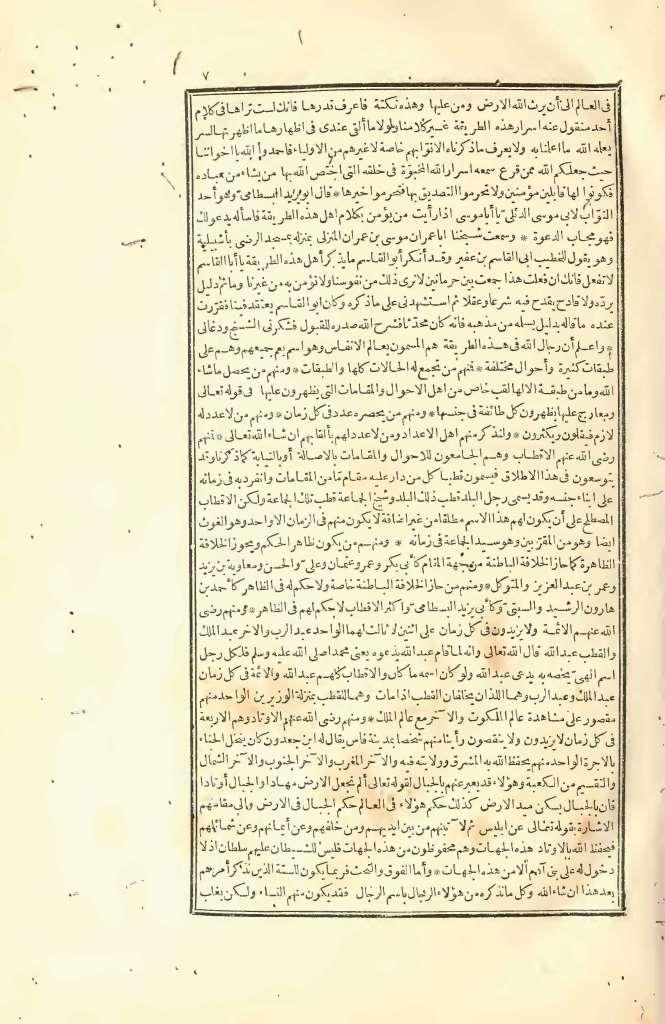 ٧
فى العالم الى أن يرث الله الارض ومن عليها وهذه نكتة فاعرف قدرها فانك لست تراها فى كلام
أحد منقول عنه اسرار هذه الطريقة غير كلامنا ولولا ما ألقى عندى فى اظهارها ما اظهرتها لسر
يعلمه الله ما اعلمنا به ولا يعرف ما ذكرناه الا نوّابهم خاصة لا غيرهم من الاولياء فاحمدوا الله يا اخواننا
حيث جعلكم الله ممن قرع سمعه اسرار الله المخبوّة فى خلقه التى اختص الله بها من يشاء من عباده
فكونوا لها قابلين مؤمنين ولا تحرموا التصديق بها فتحرموا خيرها * قال ابو يزيد البسطامى وهو أحد
النوّاب لابى موسى الدئلى يا أبا موسى اذا رأيت من يؤمن بكلام اهل هذه الطريقة فاسأله يدعو لك
فهو مجاب الدعوة * وسمعت شيخنا ابا عمران موسى بن عمران المنزلى بمنزله بمسجد الرضى بأشبيلية
وهو يقول للخطيب ابى القاسم بن عفير وقد أنكر أبو القاسم ما يذكر أهل هذه الطريقة يا أبا القاسم
لا تفعل فانك ان فعلت هذا جمعت بين حرمانين لا نرى ذلك من نفوسنا ولا نؤمن به من غيرنا وما ثم دليل
يردّه ولا قادح يقدح فيه شرعا وعقلا ثم استشهدنى على ما ذكره وكان ابو القاسم يعتقد فينا فقرّرت
عنده ما قاله بدليل يسلمه من مذهبه فانه كان محدّثا فشرح الله صدره للقبول فشكرنى الشيخ ودعا لى
* واعلم أن رجال الله فى هذه الطريقة هم المسمون بعالم الانفاس وهو اسم يعم جميعهم وهم على
طبقات كثيرة وأحوال مختلفة * فمنهم من تجمع له الحالات كلها والطبقات * ومنهم من يحصل ما شاء
الله وما من طبقة الا لها لقب خاص من اهل الاحوال والمقامات التى يظهرون عليها فى قوله تعالى
ومعارج عليها يظهرون كل طائفة فى جنسها * ومنهم من يحصره عدد فى كل زمان * ومنهم من لا عدد له
لازم فيقلون ويكثرون * ولنذكر منهم اهل الاعداد ومن لا عدد لهم بألقابهم ان شاء الله تعالى * فمنهم
رضى الله عنهم الاقطاب وهم الجامعون للاحوال والمقامات بالاصالة أو بالنيابة كما ذكرنا وقد
يتوسعون فى هذا الاطلاق فيسمون قطبا كل من دار عليه مقام مّا من المقامات وانفرد به فى زمانه
على ابناء جنسه وقد يسمى رجل البلد قطب ذلك البلد وشيخ الجماعة قطب تلك الجماعة ولكن الاقطاب
المصطلح على أن يكون لهم هذا الاسم مطلقا من غير اضافة لا يكون منهم فى الزمان الا واحد وهو الغوث
ايضا وهو من المقرّبين وهو سيد الجماعة فى زمانه * ومنهم من يكون ظاهر الحكم ويحوز الخلافة
الظاهرة كما حاز الخلافة الباطنة من جهة المقام كأبى بكر وعمر وعثمان وعلىّ والحسن ومعاوية بن يزيد
وعمر بن عبد العزيز والمتوكل * ومنهم من حاز الخلافة الباطنة خاصة ولا حكم له فى الظاهر كأحمد بن
هارون الرشيد والسبتى وكأبى يزيد البسطامى واكثر الاقطاب لا حكم لهم فى الظاهر * ومنهم رضى
الله عنهم الائمة ولا يزيدون فى كل زمان على اثنين لا ثالث لهما الواحد عبد الرب والآخر عبد الملك
والقطب عبد الله قال الله تعالى وانه لما قام عبد الله يدعوه يعنى محمدا صلى الله عليه وسلم فلكل رجل
اسم الهى يخصه به يدعى عبد الله ولو كان اسمه ما كان والاقطاب كلهم عبد الله والائمة فى كل زمان
عبد الملك وعبد الرب وهما اللذان يخلفان القطب اذا مات وهما للقطب بمنزلة الوزيرين الواحد منهم
مقصور على مشاهدة عالم الملكوت والآخر مع عالم الملك * ومنهم رضى الله عنهم الاوتاد وهم الاربعة
فى كل زمان لا يزيدون ولا ينقصون رأينا منهم شخصا بمدينة فاس يقال له ابن جعدون كان ينخل الحناء
بالاجرة الواحد منهم يحفظ الله به المشرق وولايته فيه والآخر المغرب والآخر الجنوب والآخر الشمال
والتقسيم من الكعبة وهؤلاء قد يعبر عنهم بالجبال لقوله تعالى ألم نجعل الارض مهادا والجبال أوتادا
فان بالجبال يسكن ميد الارض كذلك حكم هؤلاء فى العالم حكم الجبال فى الارض والى مقامهم
الاشارة بقوله تعالى عن ابليس ثم لآتينهم من بين ايديهم ومن خلفهم وعن أيمانهم وعن شمائلهم
فيحفظ الله بالاوتاد هذه الجهات وهم محفوظون من هذه الجهات فليس للشيطان عليهم سلطان اذ لا
دخول له على بنى آدم الا من هذه الجهات * وأما الفوق والتحت فربما يكون للستة الذين نذكر أمرهم
بعد هذا ان شاء الله وكل ما نذكره من هؤلاء الرجال باسم الرجال فقد يكون منهم النساء ولكن يغلب